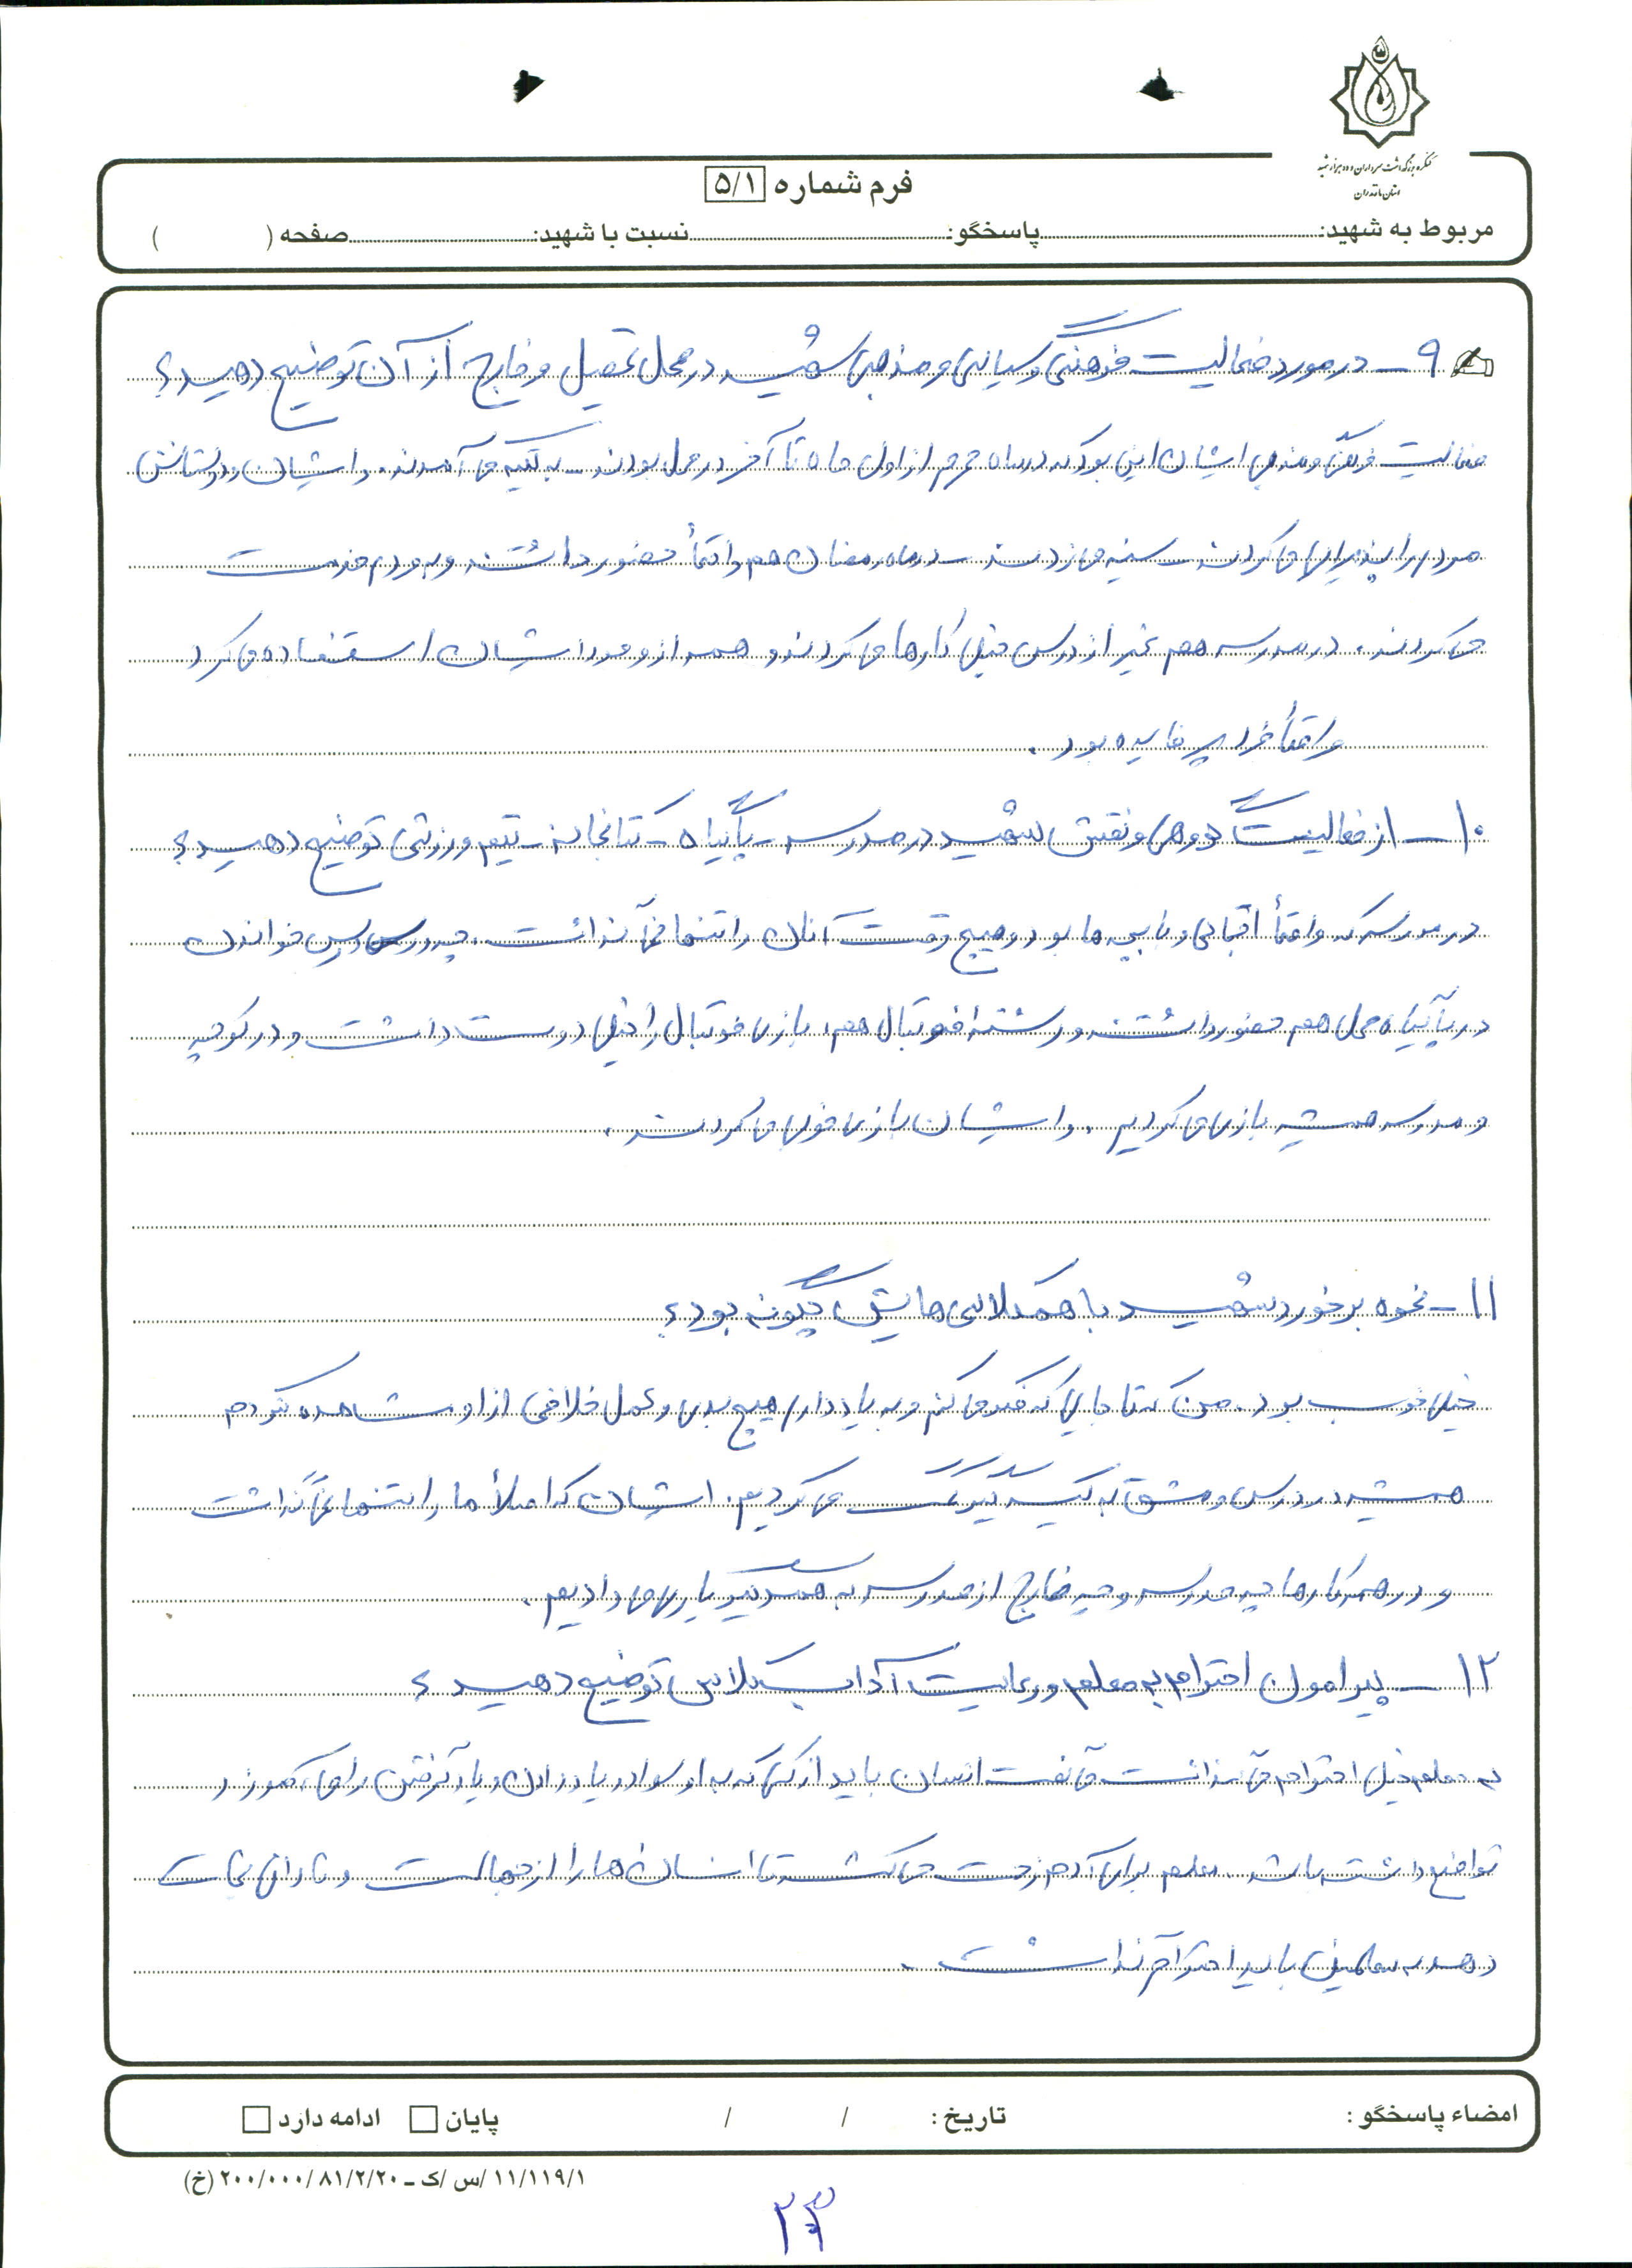 کنگره بزرگداشت سرداران و ده هزار شهید
استان مازندران
فرم شماره ۵/۱
مربوط به شهید: پاسخگو: نسبت با شهید: صفحه ( )
۹ - در مورد فعالیت فرهنگی و سیاسی و مذهبی شهید در محل تحصیل و خارج از آن توضیح دهید؟
فعالیت فرهنگی و مذهبی ایشان این بود که در ماه محرم از اول ماه تا آخر در محل بودند به تکیه می آمدند. و ایشان و دوستانش
مردم را پذیرایی می کردند سینه می زدند در ماه رمضان هم واقعاً حضور داشتند و به مردم خدمت
می کردند. در مدرسه هم غیر از درس خیلی کارها می کردند و همه از وجود ایشان استفاده می کرد
واقعاً فرد پر فایده بود.
۱۰ - از فعالیت گروهی و نقش شهید در مدرسه - پایگاه - کتابخانه - تیم ورزشی توضیح دهید؟
در مدرسه که واقعاً اجتماعی و با بچه ها بود و هیچ وقت آنان را تنها نمی گذاشت. چه در درس خواندن
در پایگاه محل هم حضور داشتند و رشته فوتبال هم، بازی فوتبال را خیلی دوست داشت و در کوچه
و مدرسه همیشه بازی می کردیم. و ایشان بازی خوبی می کردند.
۱۱ - نحوه برخورد شهید با همکلاسی هایش چگونه بود؟
خیلی خوب بود. من که تا جایی که فکر می کنم و به یاد دارم هیچ بدی و عمل خلافی از او مشاهده نکردم
همیشه در درس و مشق به یکدیگر کمک می کردیم. ایشان که اصلاً ما را تنها نمی گذاشت
و در همه کارها چه مدرسه و چه خارج از مدرسه به همدیگر یاری می دادیم.
۱۲ - پیرامون احترام به معلم و رعایت آداب کلاس توضیح دهید؟
به معلم خیلی احترام می گذاشت می گفت انسان باید از کسی که به او سواد و یاد دادن و یاد گرفتن را می آموزد
تواضع داشته باشد. معلم برای آدم زحمت می کشد تا انسان ها را از جهالت و نادانی نجات
دهد به معلمین باید احترام گذاشت.
امضاء پاسخگو : تاریخ : / / پایان ادامه دارد
۱۱/۱۱۹/۱ /س /ک ـ ۲۰۰/۰۰۰/ ۸۱/۲/۲۰ (خ)
۲۳